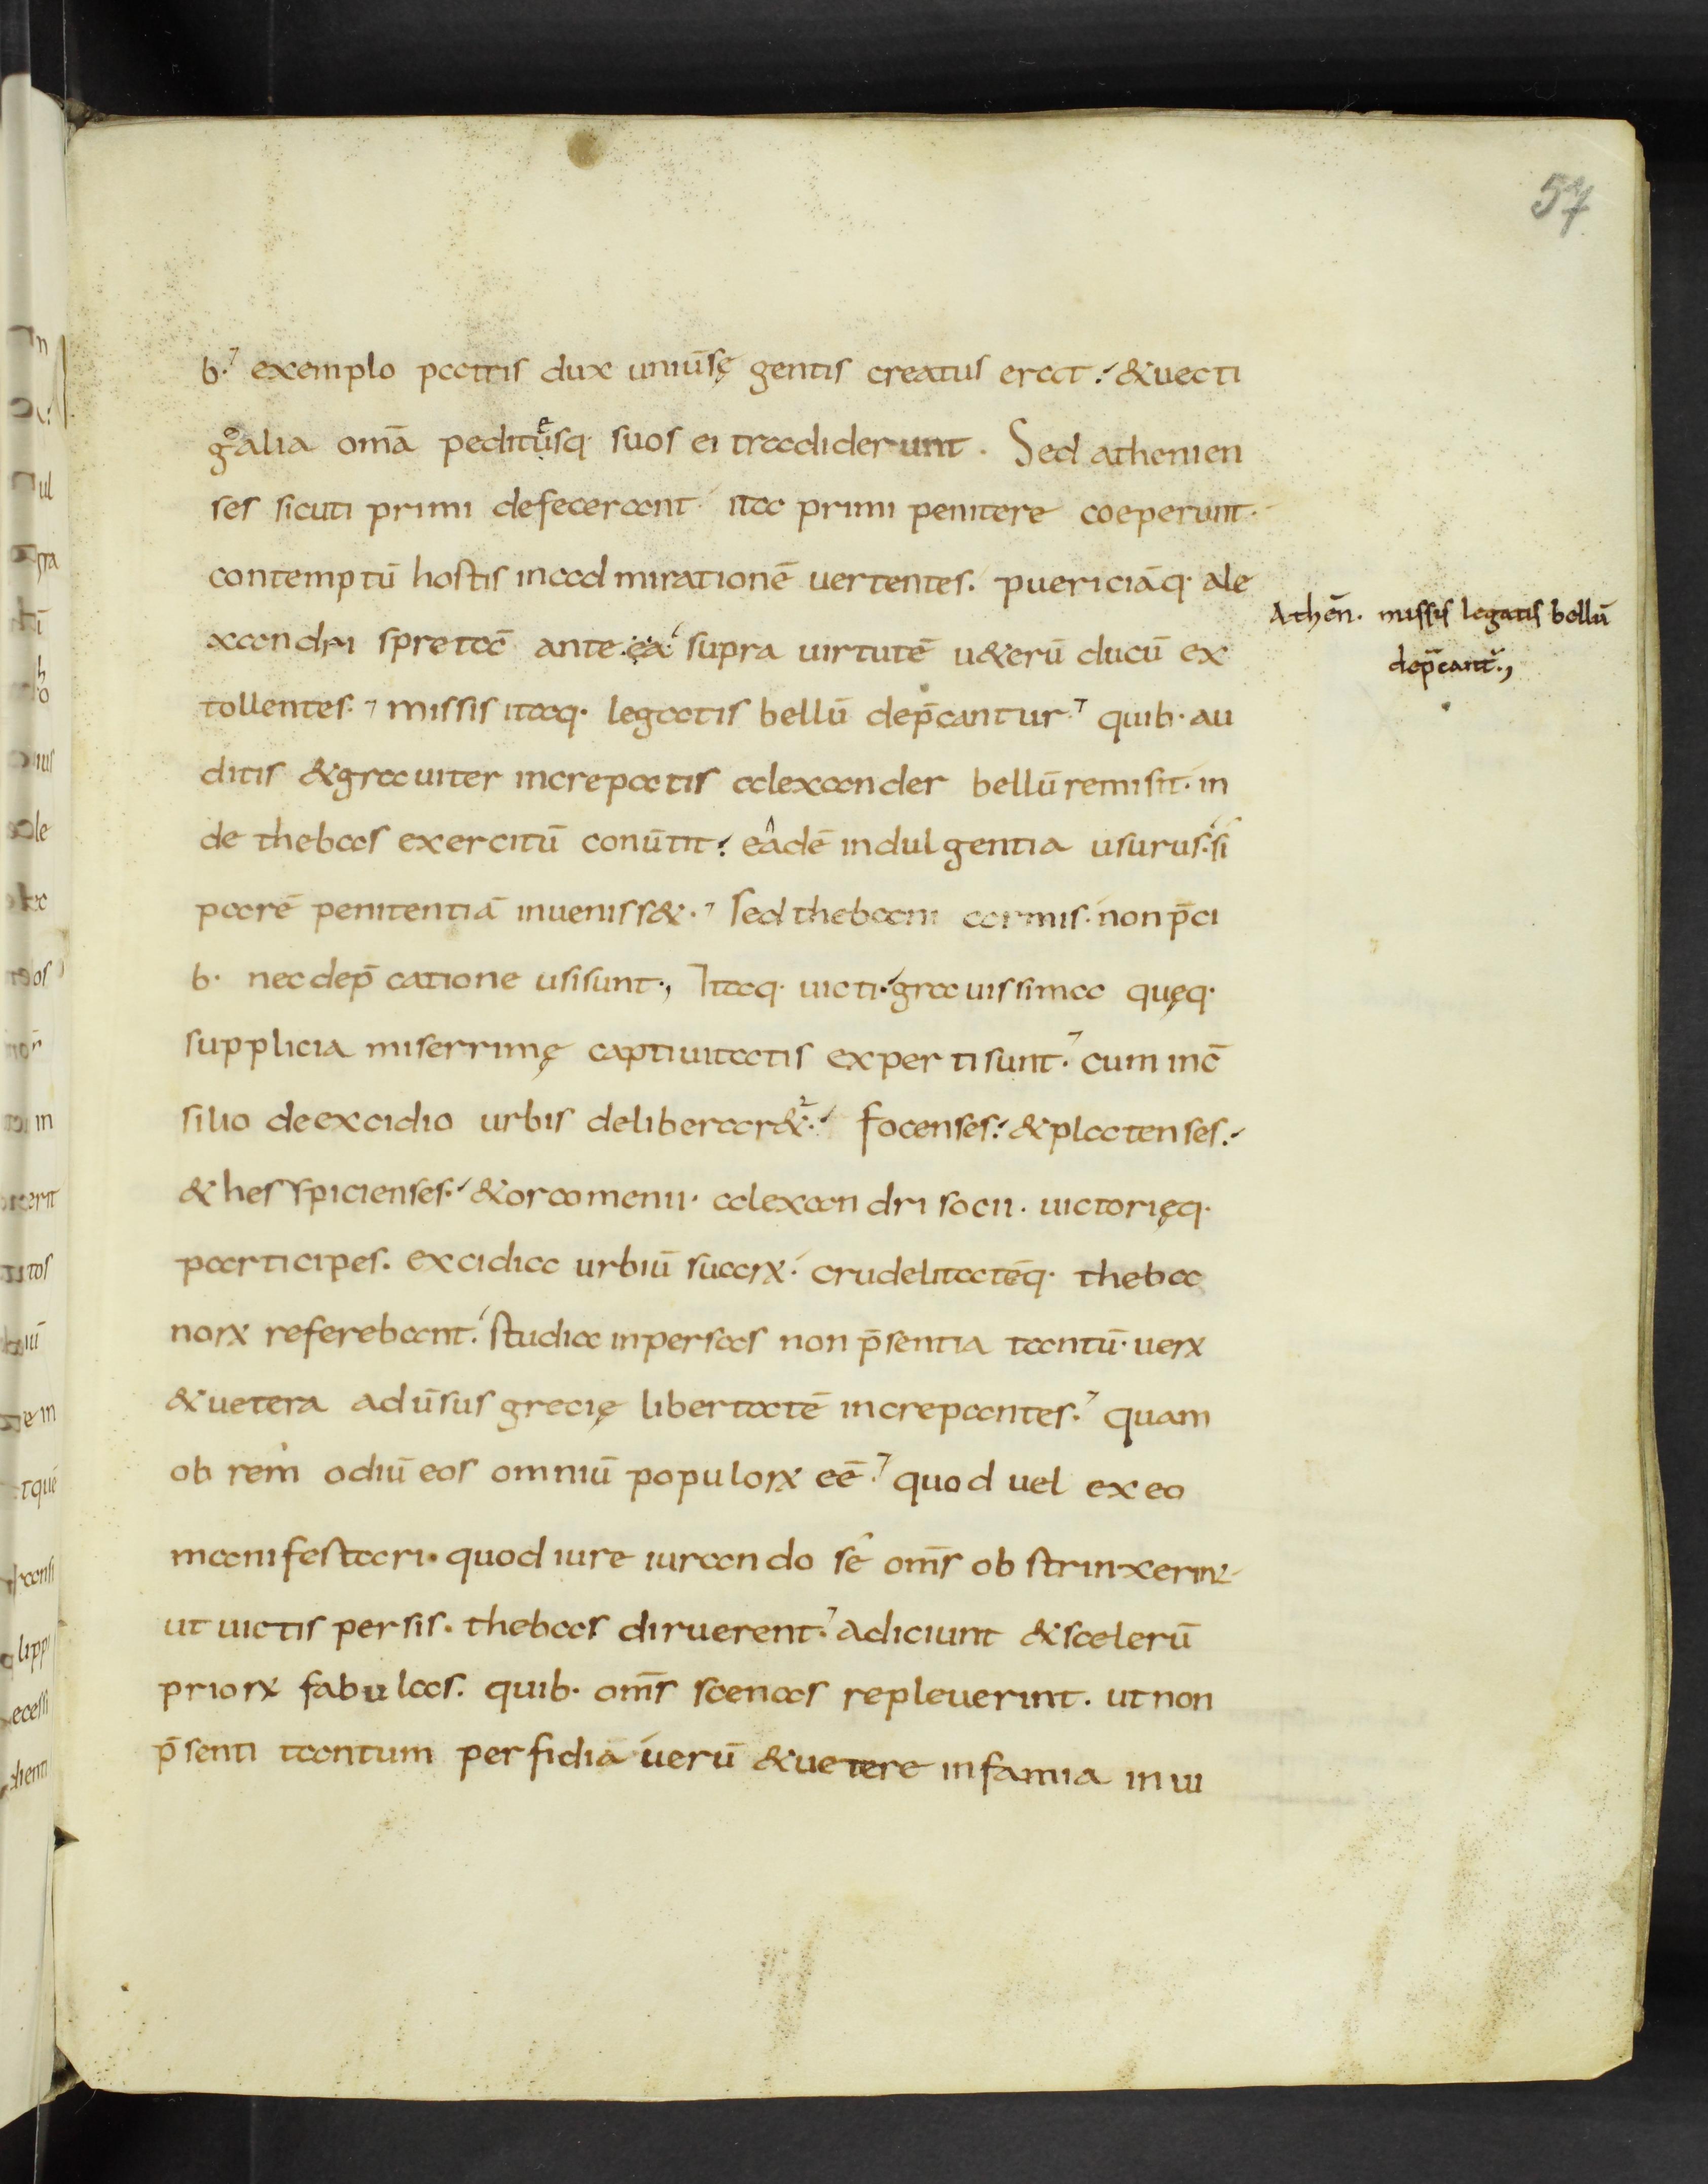 57
b· exemplo patris dux uniūsę gentis creatus erat· & uecti
galia omā peditūsq· suos ei tradiderunt. Sed athenien
ses sicuti primi defecerant ita primi penitere coeperunt·
contemptū hostis in admirationē uertentes. puericiāq· ale
xandri spretā ante·ea· supra uirtutē u&erū ducū ex
tollentes· missis itaq· legatis bellū dep̄cantur· quib· au
ditis & grauiter increpatis alexander bellū remisit· in
de thebas exercitū conūtit· eadē indulgentia usurus· si
parē penitentiā inueniss&· Sed thebani armis· non p̄ci
b· nec dep̄catione usi sunt·, Itaq· uicti· grauissima quęq·
supplicia miserrimę captiuitatis experti sunt· cum in c̄
silio de excidio urbis deliberar&· focenses· & platenses·
& hespicienses· & orcomenii· alexandri socii· uictorięq·
participes. excidia urbiū suarꝝ· crudelitatēq· theba
norꝝ referebant· studia in persas non p̄sentia tantū· uerꝝ
& uetera adūsus grecię libertatē increpantes· quam
ob rem odiū eos omniū populorꝝ eē· quod uel ex eo
manifestari· quod iure iurando se om̄s obstrinxerint
ut uictis persis· thebas diruerent· adiciunt & scelerū
priorꝝ fabulas· quib· om̄s scenas repleuerint· ut non
p̄senti tantum perfidia uerū & uetere infamia inui
Athēn. missis legatis bellū
dep̄cant·,